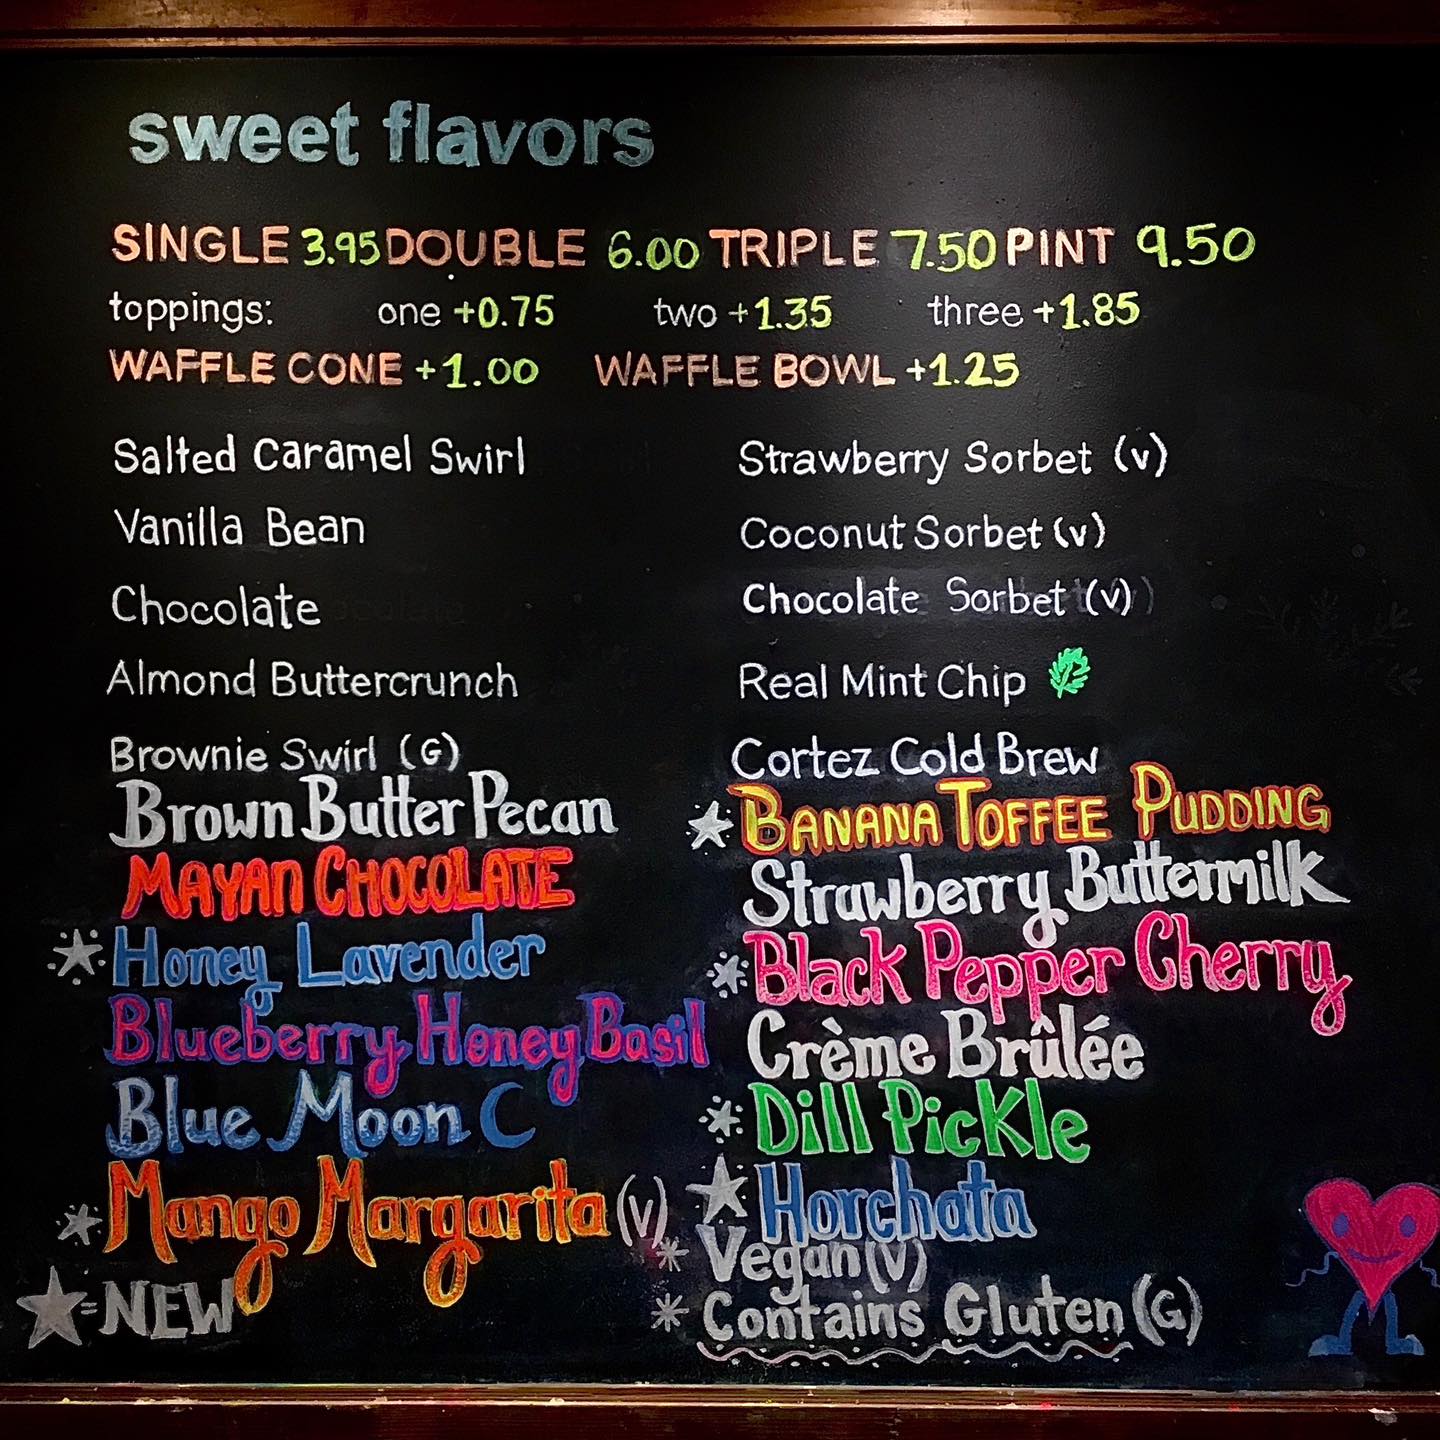 sweet flavors
SINGLE 3.95 DOUBLE 6.00 TRIPLE 7.50 PINT 9.50
toppings: one +0.75 two +1.35 three +1.85
WAFFLE CONE +1.00 WAFFLE BOWL +1.25
Salted Caramel Swirl
Vanilla Bean
Chocolate
Almond Buttercrunch
Brownie Swirl (G)
Brown Butter Pecan
MAYAN CHOCOLATE
Honey Lavender
Blueberry Honey Basil
Blue Moon
Mango Margarita (V)
= NEW
Strawberry Sorbet (v)
Coconut Sorbet (v)
Chocolate Sorbet (v)
Real Mint Chip
Cortez Cold Brew
BANANA TOFFEE PUDDING
Strawberry Buttermilk
Black Pepper Cherry
Crème Brûlée
Dill Pickle
Horchata
* Vegan (V)
* Contains Gluten (G)